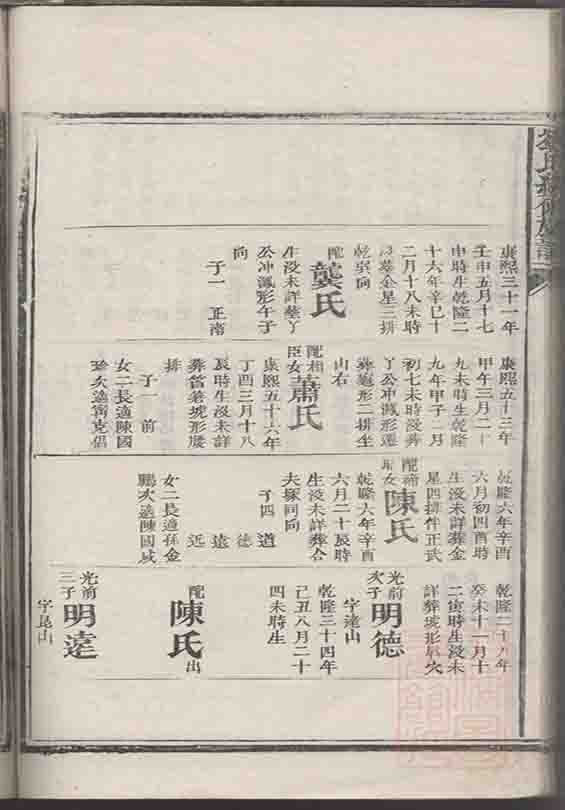 康熙三十一年
壬申五月十七
申時生乾隆二
十六年辛巳十
二月十八未時
沒葬金星三排
乾巽向
配龔氏
生沒未詳葬丫
公冲瀉形午子
向
子一 正南
康熙五十三年
甲午三月二十
九未時生乾隆
九年甲子二月
初七未時沒葬
丫公冲瀉形遷
葬龜形二排坐
山右
配相臣女蕭氏
康熙五十六年
丁酉三月十八
辰時生沒未詳
葬當老琥形屢
排
子一 前
女二長適陳國
珍次適甯克倡
乾隆六年辛酉
六月初四酉時
生沒未詳葬金
星四排作正武
配 女陳氏
乾隆六年辛酉
六月二十辰時
生沒未詳葬合
夫塚同向
子四 道
德
遠
近
女二長適孫金
鵬次適陳國咸
乾隆二十八年
癸未十一月十
二寅時生沒未
詳葬琥形 穴
光前次子明德
字達山
乾隆三十四年
己丑八月二十
四未時生
配陳氏出
光前三子明遠
字昆山